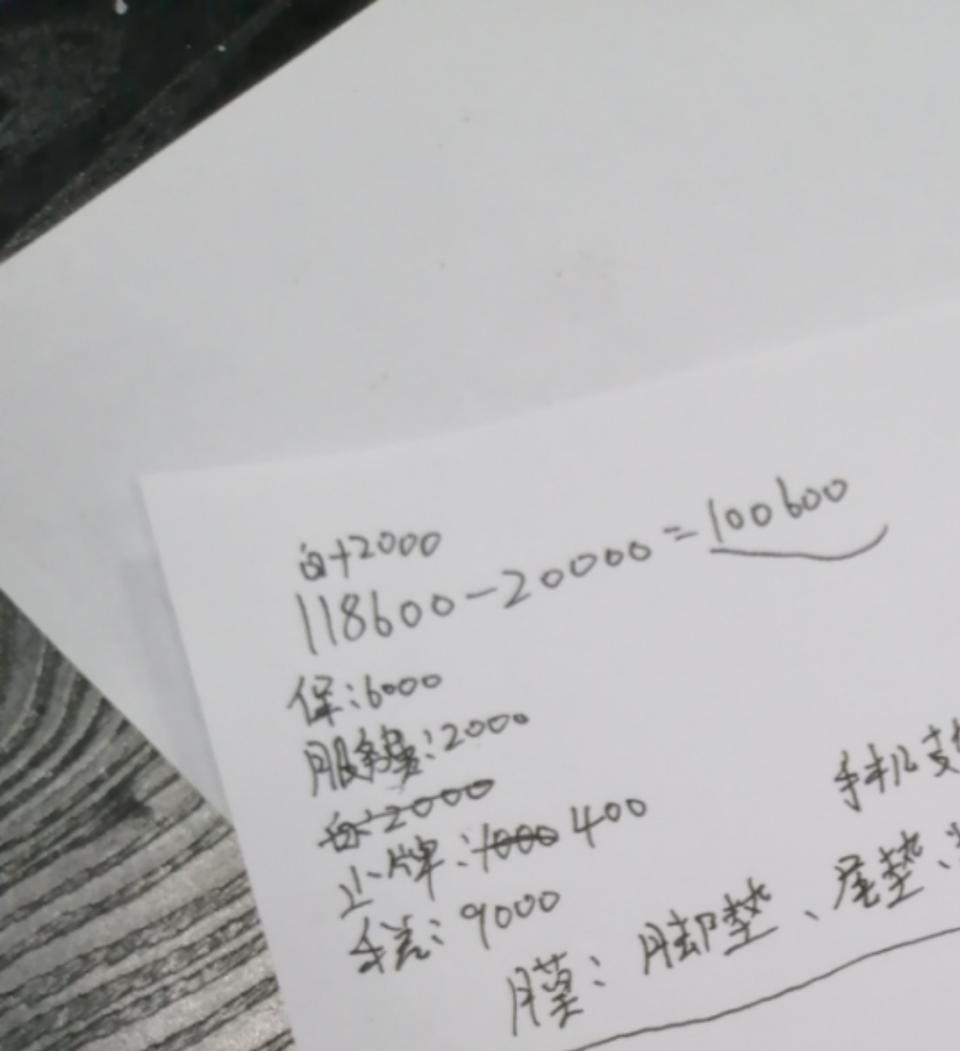 白+2000
118600-20000=100600
保:6000
服务费:2000
白:2000
上牌:1000 400
手续:9000
手机支
膜:脚垫、尾垫、